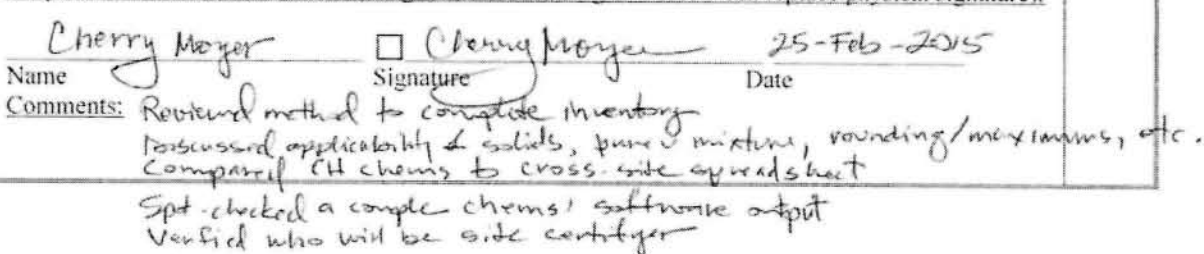 Cherry Moyer ☐ Cherry Moyer 25-Feb-2015
Name Signature Date
Comments: Reviewed method to complete inventory
Discussed applicability of solids, pure v mixture, rounding/maximums, etc.
Compared CH chems to cross-site spreadsheet
Spot-checked a couple chems' software output
Verified who will be site certifyer